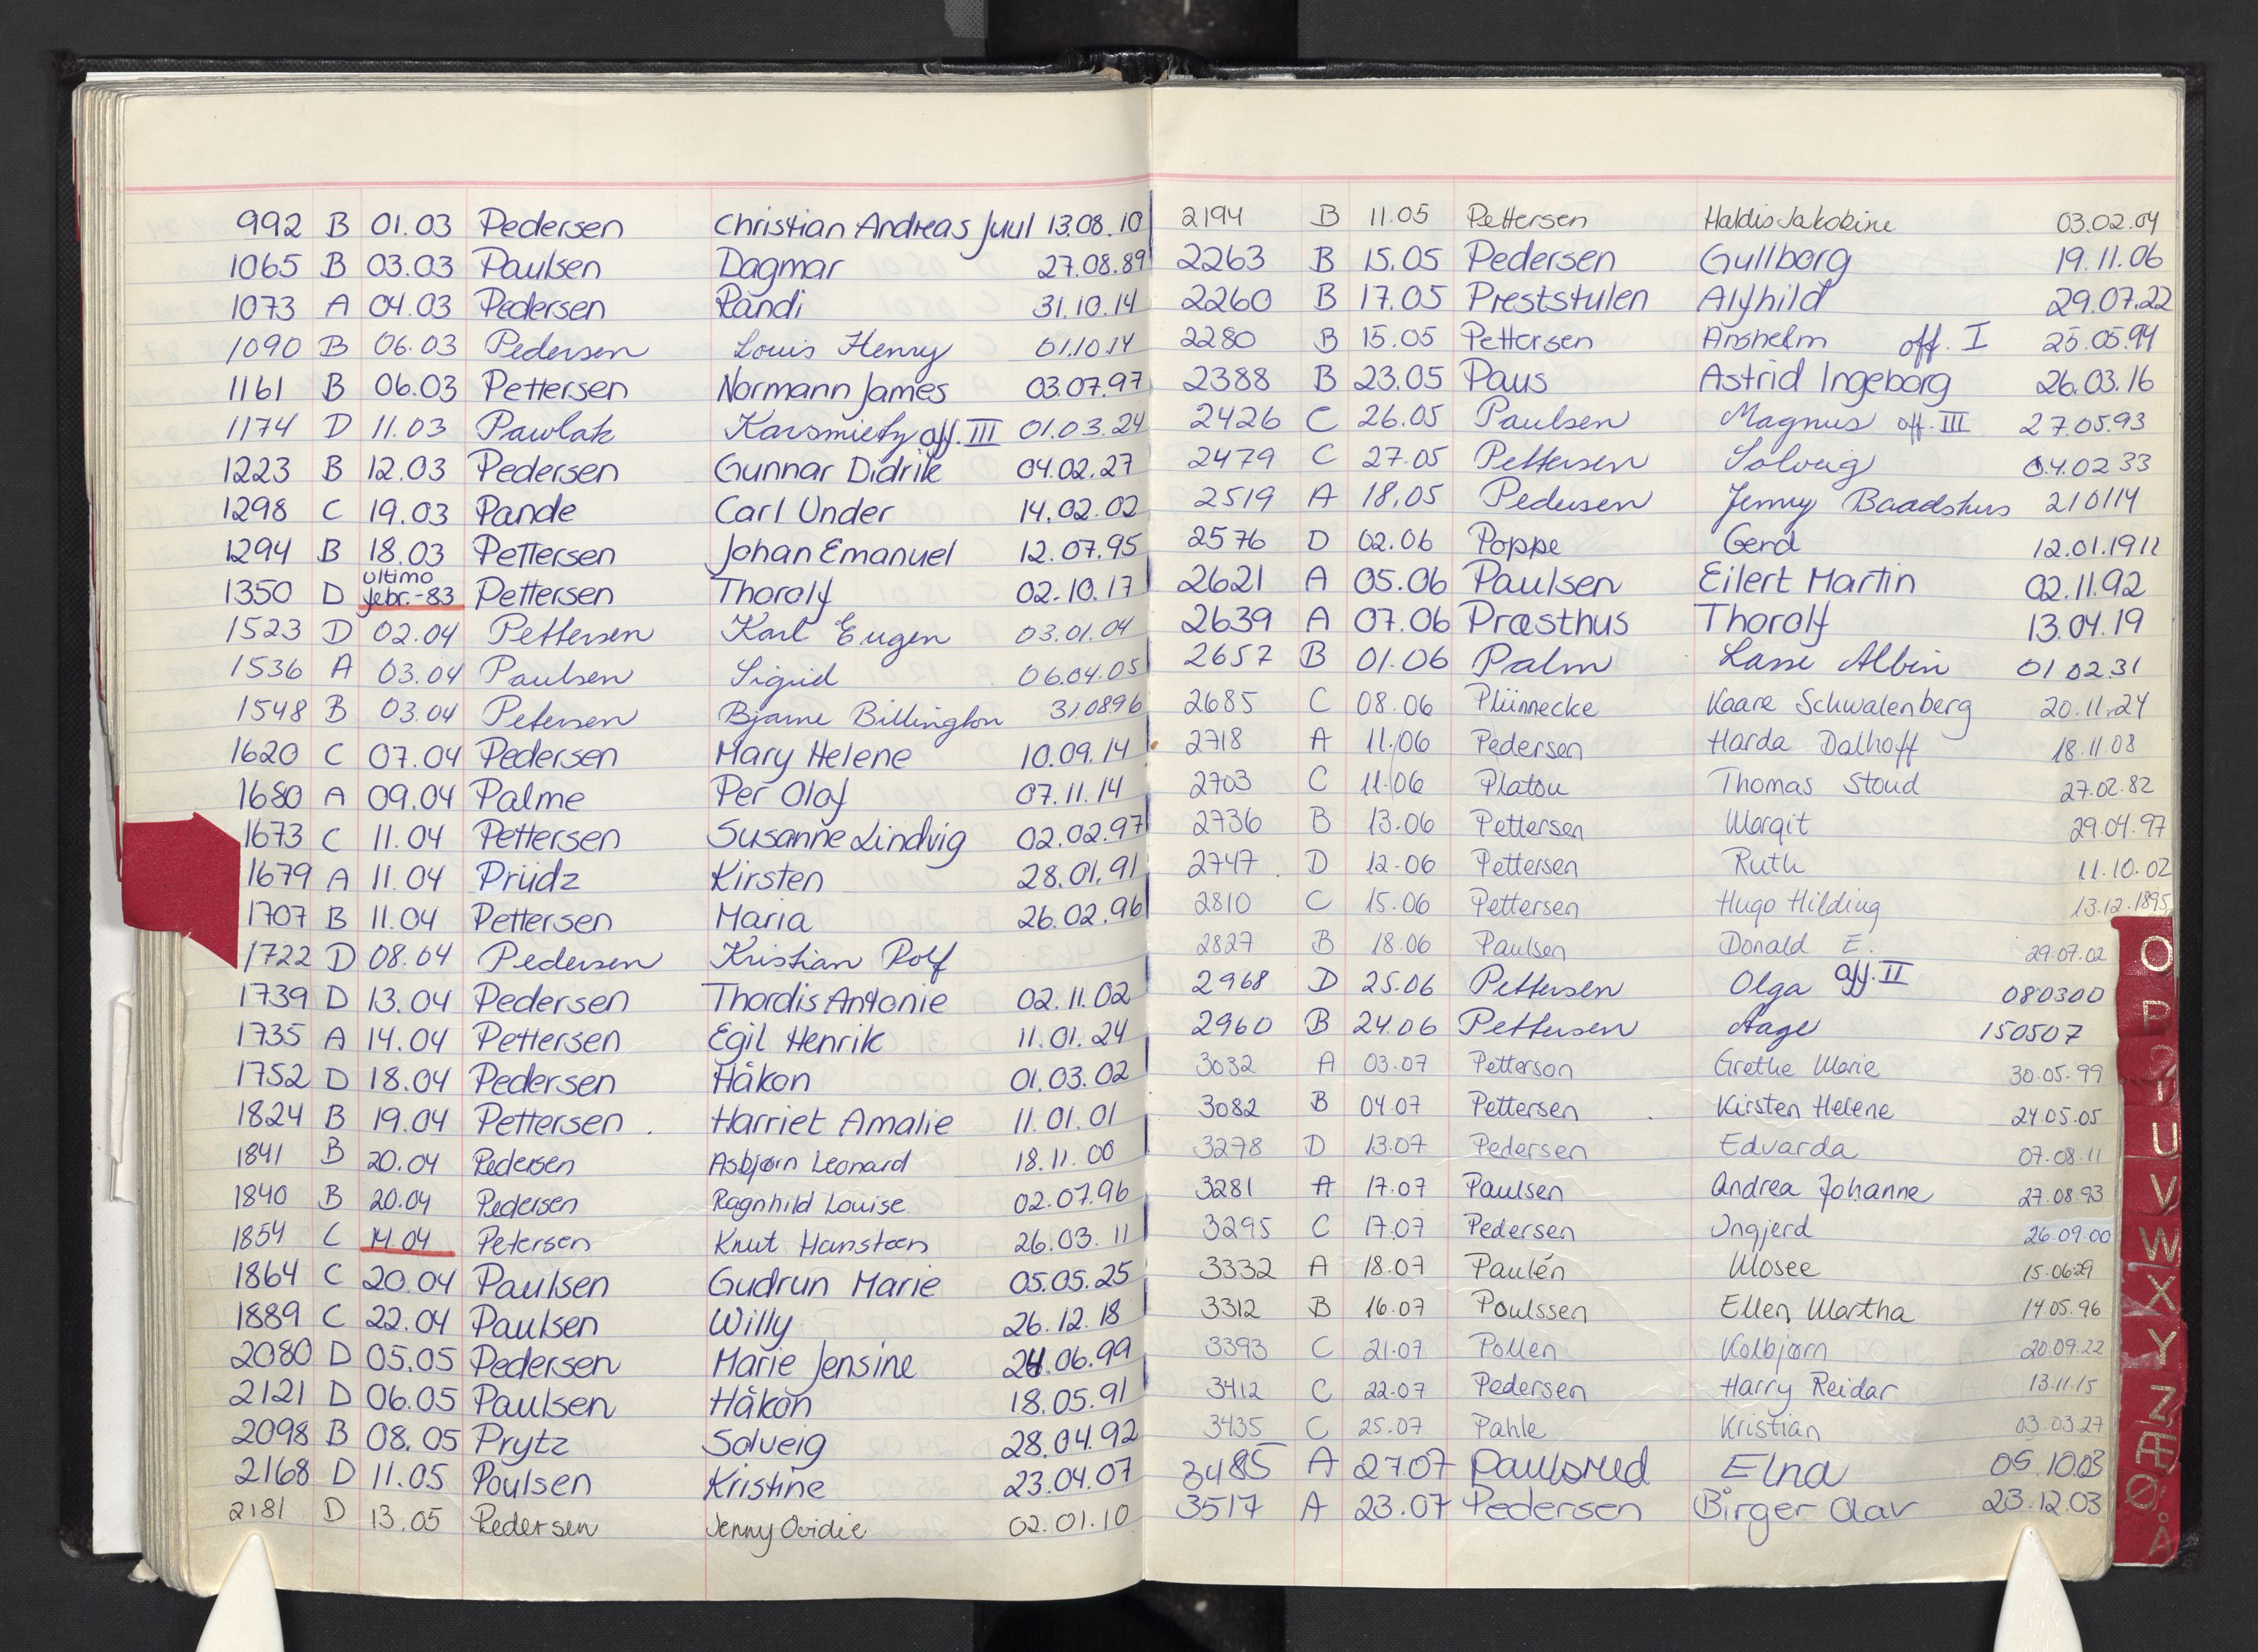 992 B 01.03 Pedersen Christian Andreas Juul 13.08.10
1065 B 03.03 Paulsen Dagmar 27.08.89
1073 A 04.03 Pedersen Randi 31.10.14
1090 B 06.03 Pedersen Louis Henry 01.10.14
1161 B 06.03 Pettersen Normann James 03.07.97
1174 D 11.03 Pawlak off. III 01.03.24
1223 B 12.03 Pedersen Gunnar Didrik 04.02.27
1298 C 19.03 Pande Carl Under 14.02.02
1294 B 18.03 Pettersen Johan Emanuel 12.07.95
ultimo
1350 D febr.-83 Pettersen Thoralf 02.10.17
1523 D 02.04 Pettersen Karl Eugen 03.01.04
1536 A 03.04 Paulsen Sigrid 06.04.05
1548 B 03.04 Petersen Bjarne Billington 310896
1620 C 07.04 Pedersen Mary Helene 10.09.14
1680 A 09.04 Palme Per Olaf 07.11.14
1673 C 11.04 Pettersen Susanne Lindvig 02.02.97
1679 A 11.04 Prüdz Kirsten 28.01.91
1707 B 11.04 Pettersen Maria 26.02.96
1722 D 08.04 Pedersen Kristian Rolf
1739 D 13.04 Pedersen Thordis Antonie 02.11.02
1735 A 14.04 Pettersen Egil Henrik 11.01.24
1752 D 18.04 Pedersen Håkon 01.03.02
1824 B 19.04 Pettersen. Harriet Amalie 11.01.01
1841 B 20.04 Pedersen Asbjørn Leonard 18.11.00
1840 B 20.04 Pedersen Ragnhild Louise. 02.07.96
1854 C 14.04 Petersen Knut Hansteen 26.03.11
1864 C 20.04 Paulsen Gudrun Marie 05.05.25
1889 C 22.04 Paulsen Willy 26.12.18
2080 D 05.05 Pedersen Marie Jensine
2121 D 06.05 Paulsen Håkon 18.05.91
2098 B 08.05 Prytz Solveig 28.04.92
2168 D 11.05 Poulsen Kristine 23.04.07
2181 D 13.05 Pedersen Jenny Ovidie 02.01.10
2194 B 11.05 Pettersen Haldis Jakobine 03.02.04
2263 B 15.05 Pedersen Gullborg 19.11.06
2260 B 17.05 Preststulen Alfhild 29.07.22
2280 B 15.05 Pettersen Anshelm off. I 25.05.94
2388 B 23.05 Paus Astrid Ingeborg 26.03.16
2426 C 26.05 Paulsen Magnus off. III 27.05.93
2479 C 27.05 Pettersen Solveig 04.02 33
2519 A 18.05 Pedersen Jenny Baadshus 210114
2576 D 02.06 Poppe Gerd 12.01.1911
2621 A 05.06 Paulsen Eilert Martin 02.11.92
2639 A 07.06 Præsthus Thoralf 13.04.19
2657 B 01.06 Palm Lasse Albin 01 02 31
2685 C 08.06 Plünnecke Kaare Schwalenberg 20.11.24
2718 A 11.06 Pedersen Harda Dalhoff 18.11.08
2703 C 11.06 Platou Thomas Stoud 27.02.82
2736 B 13.06 Pettersen Margit 29.04.97
2747 D 12.06 Pettersen Ruth 11.10.02
2810 C 15.06 Pettersen Hugo Hilding 13.12.1895
2827 B 18.06 Paulsen Donald E. 29.07.02
2968 D 25.06 Pettersen Olga off. II 080300
2960 B 24.06 Pettersen Aage 150507
3032 A 03.07 Petterson Grethe Marie 30.05.99
3082 B 04.07 Pettersen Kirsten Helene 24.05.05
3278 D 13.07 Pedersen Edvarda 07.08.11
3281 A 17.07 Paulsen Andrea Johanne 27.08.93
3295 C 17.07 Pedersen Ingjerd 26.09.00
3332 A 18.07 Paulén Mosee 15.0629
3312 B 16.07 Poulssen Ellen Martha 14.05.96
3393 C 21.07 Pollen Kolbjørn 20.09.22
3412 C 22.07 Pedersen Harry Reidar 13.11.15
3435 C 25.07 Pahle Kristian 03.03.27
3485 A 27.07 Paulsrud Elna 05.10.03
3517 A 23.07 Pedersen Birger Olav 23.12.03
O
P
U
V
W
X
Y
Z
Æ
Ø
Å